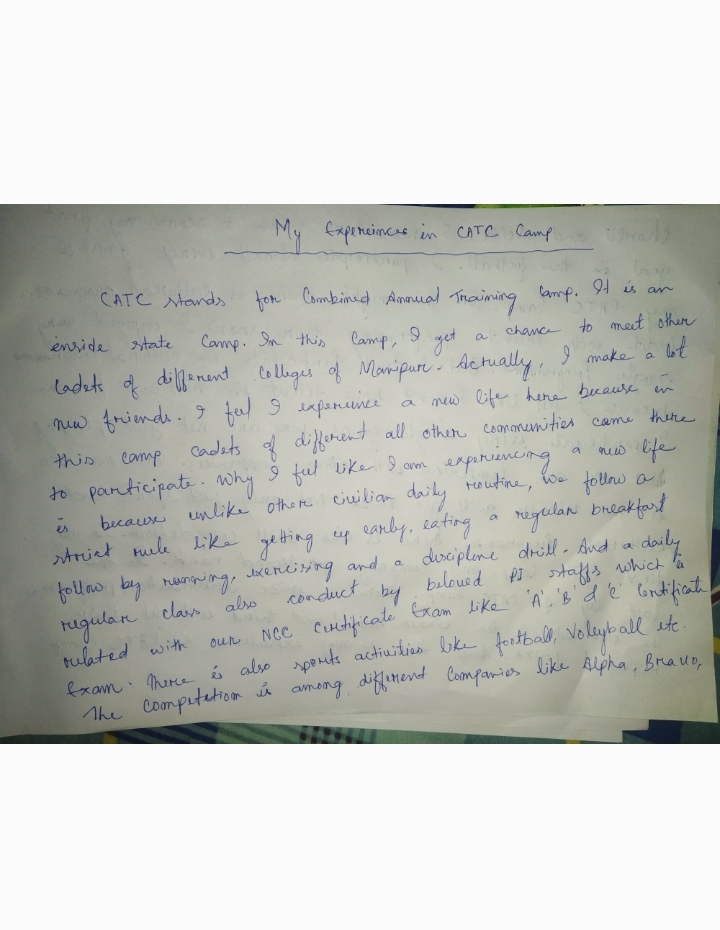 My Expereinces in CATC Camp
CATC stands for Combined Annual Training Camp. It is an
inside state Camp. In this Camp, I get a chance to meet other
Cadets of different Colleges of Manipur. Actually, I make a lot
new friends. I feel I experience a new life here because in
this camp cadets of different all other communities came there
to participate. Why I feel like I am experiencing a new life
is because unlike other civilian daily routine, we follow a
strict rule like getting up early, eating a regular breakfast
follow by running, exercising and a discipline drill. And a daily
regular class also conduct by beloved PI staffs which is
related with our NCC Certificate Exam like 'A', 'B' & 'C' Certificate
Exam. There is also sports activities like football, Volleyball etc.
The Competition is among different Companies like Alpha, Bravo,